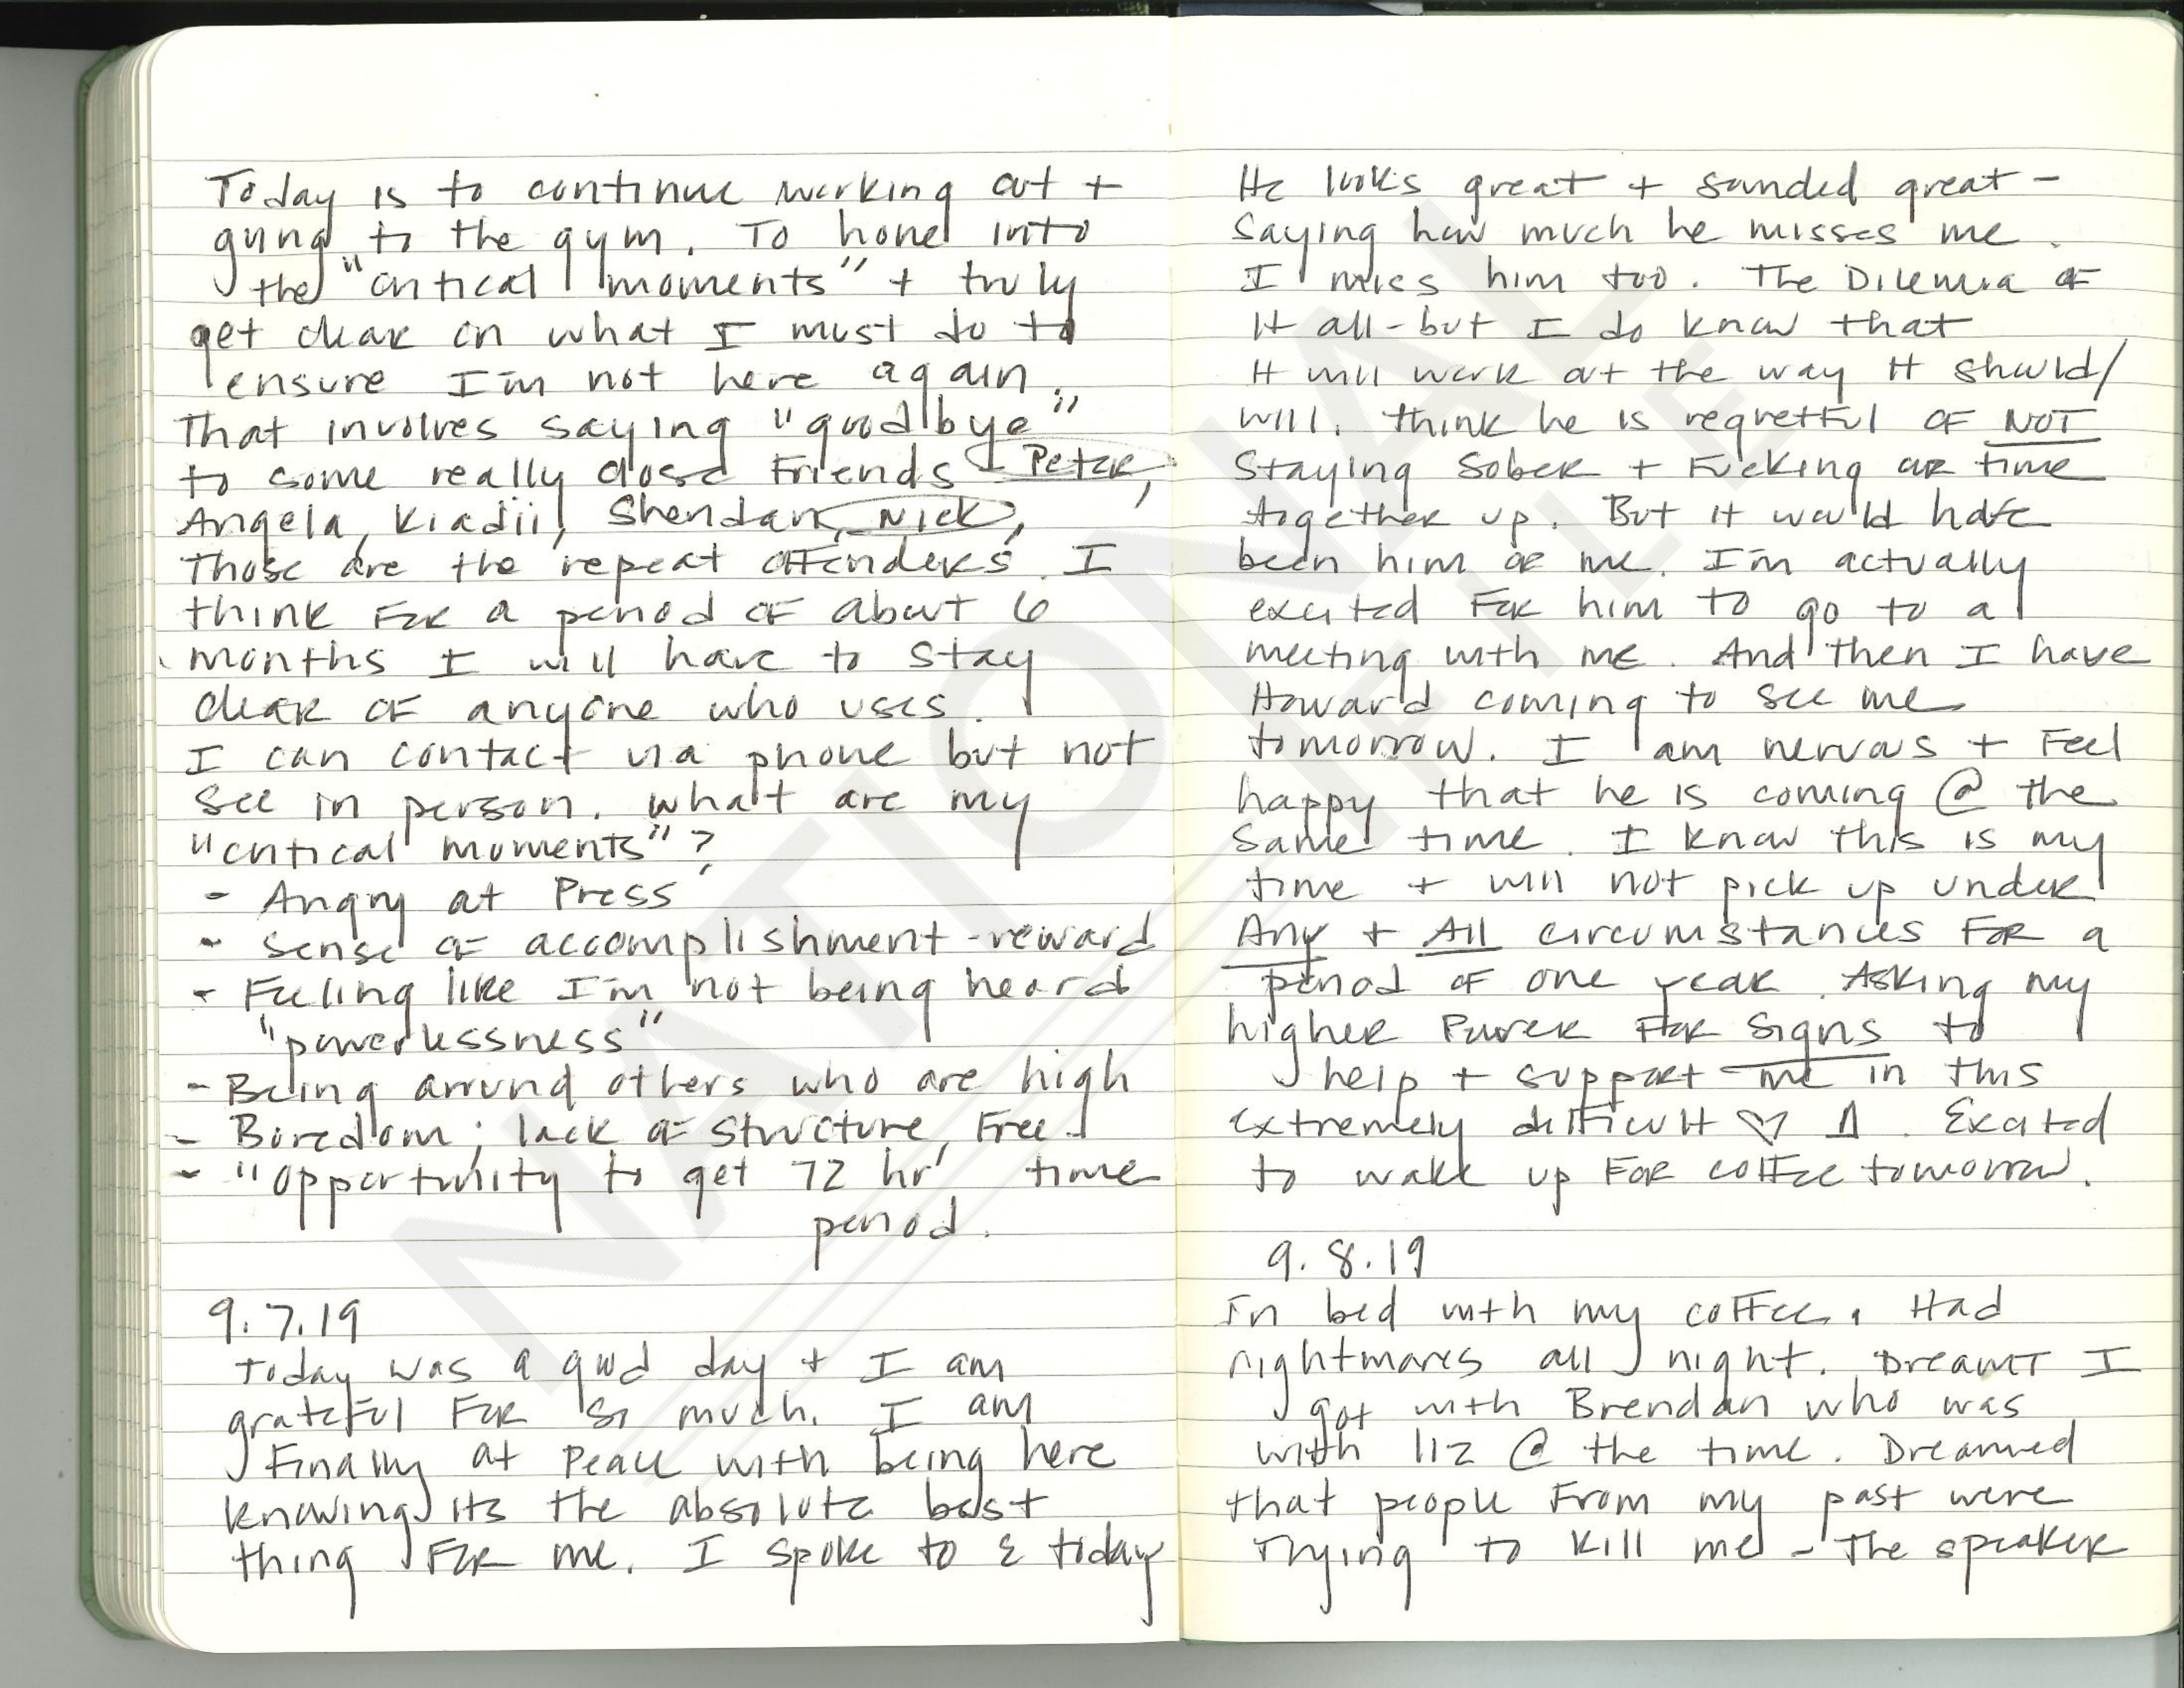 Today is to continue working out +
going to the gym. To hone into
the "critical moments" + truly
get clear on what I must do to
ensure I'm not here again.
That involves saying "goodbye"
to some really close friends - Peter,
Angela, Kiadii, Shendan, Nick,
Those are the repeat offenders. I
think for a period of about 6
months I will have to stay
clear of anyone who uses.
I can contact via phone but not
see in person. What are my
"critical moments"?
- Angry at Press
- sense of accomplishment - reward
- Feeling like I'm not being heard
"powerlessness"
- Being around others who are high
- Boredom; lack of structure, Free
- "opportunity to get 72 hr" time
period.
9.7.19
Today was a good day + I am
grateful for so much. I am
Finally at Peace with being here
knowing its the absolute best
thing for me. I spoke to E today
He looks great + sounded great -
Saying how much he misses me.
I miss him too. The Dilemia of
It all - but I do know that
It will work out the way It should/
will. Think he is regretful of NOT
Staying Sober + Fucking our time
together up. But it would have
been him or me. I'm actually
excited for him to go to a
meeting with me. And then I have
Howard coming to see me
tomorrow. I am nervous + Feel
happy that he is coming @ the
same time. I know this is my
time + will not pick up under
Any + All circumstances for a
period of one year. Asking my
higher Power for signs to
help + support me in this
extremely difficult ♡. Excited
to wake up for coffee tomorrow.
9.8.19
In bed with my coffee. Had
nightmares all night. Dreamt I
got with Brendan who was
with liz @ the time. Dreamed
that people from my past were
Trying to kill me - the speaker
NATIONAL
FILE